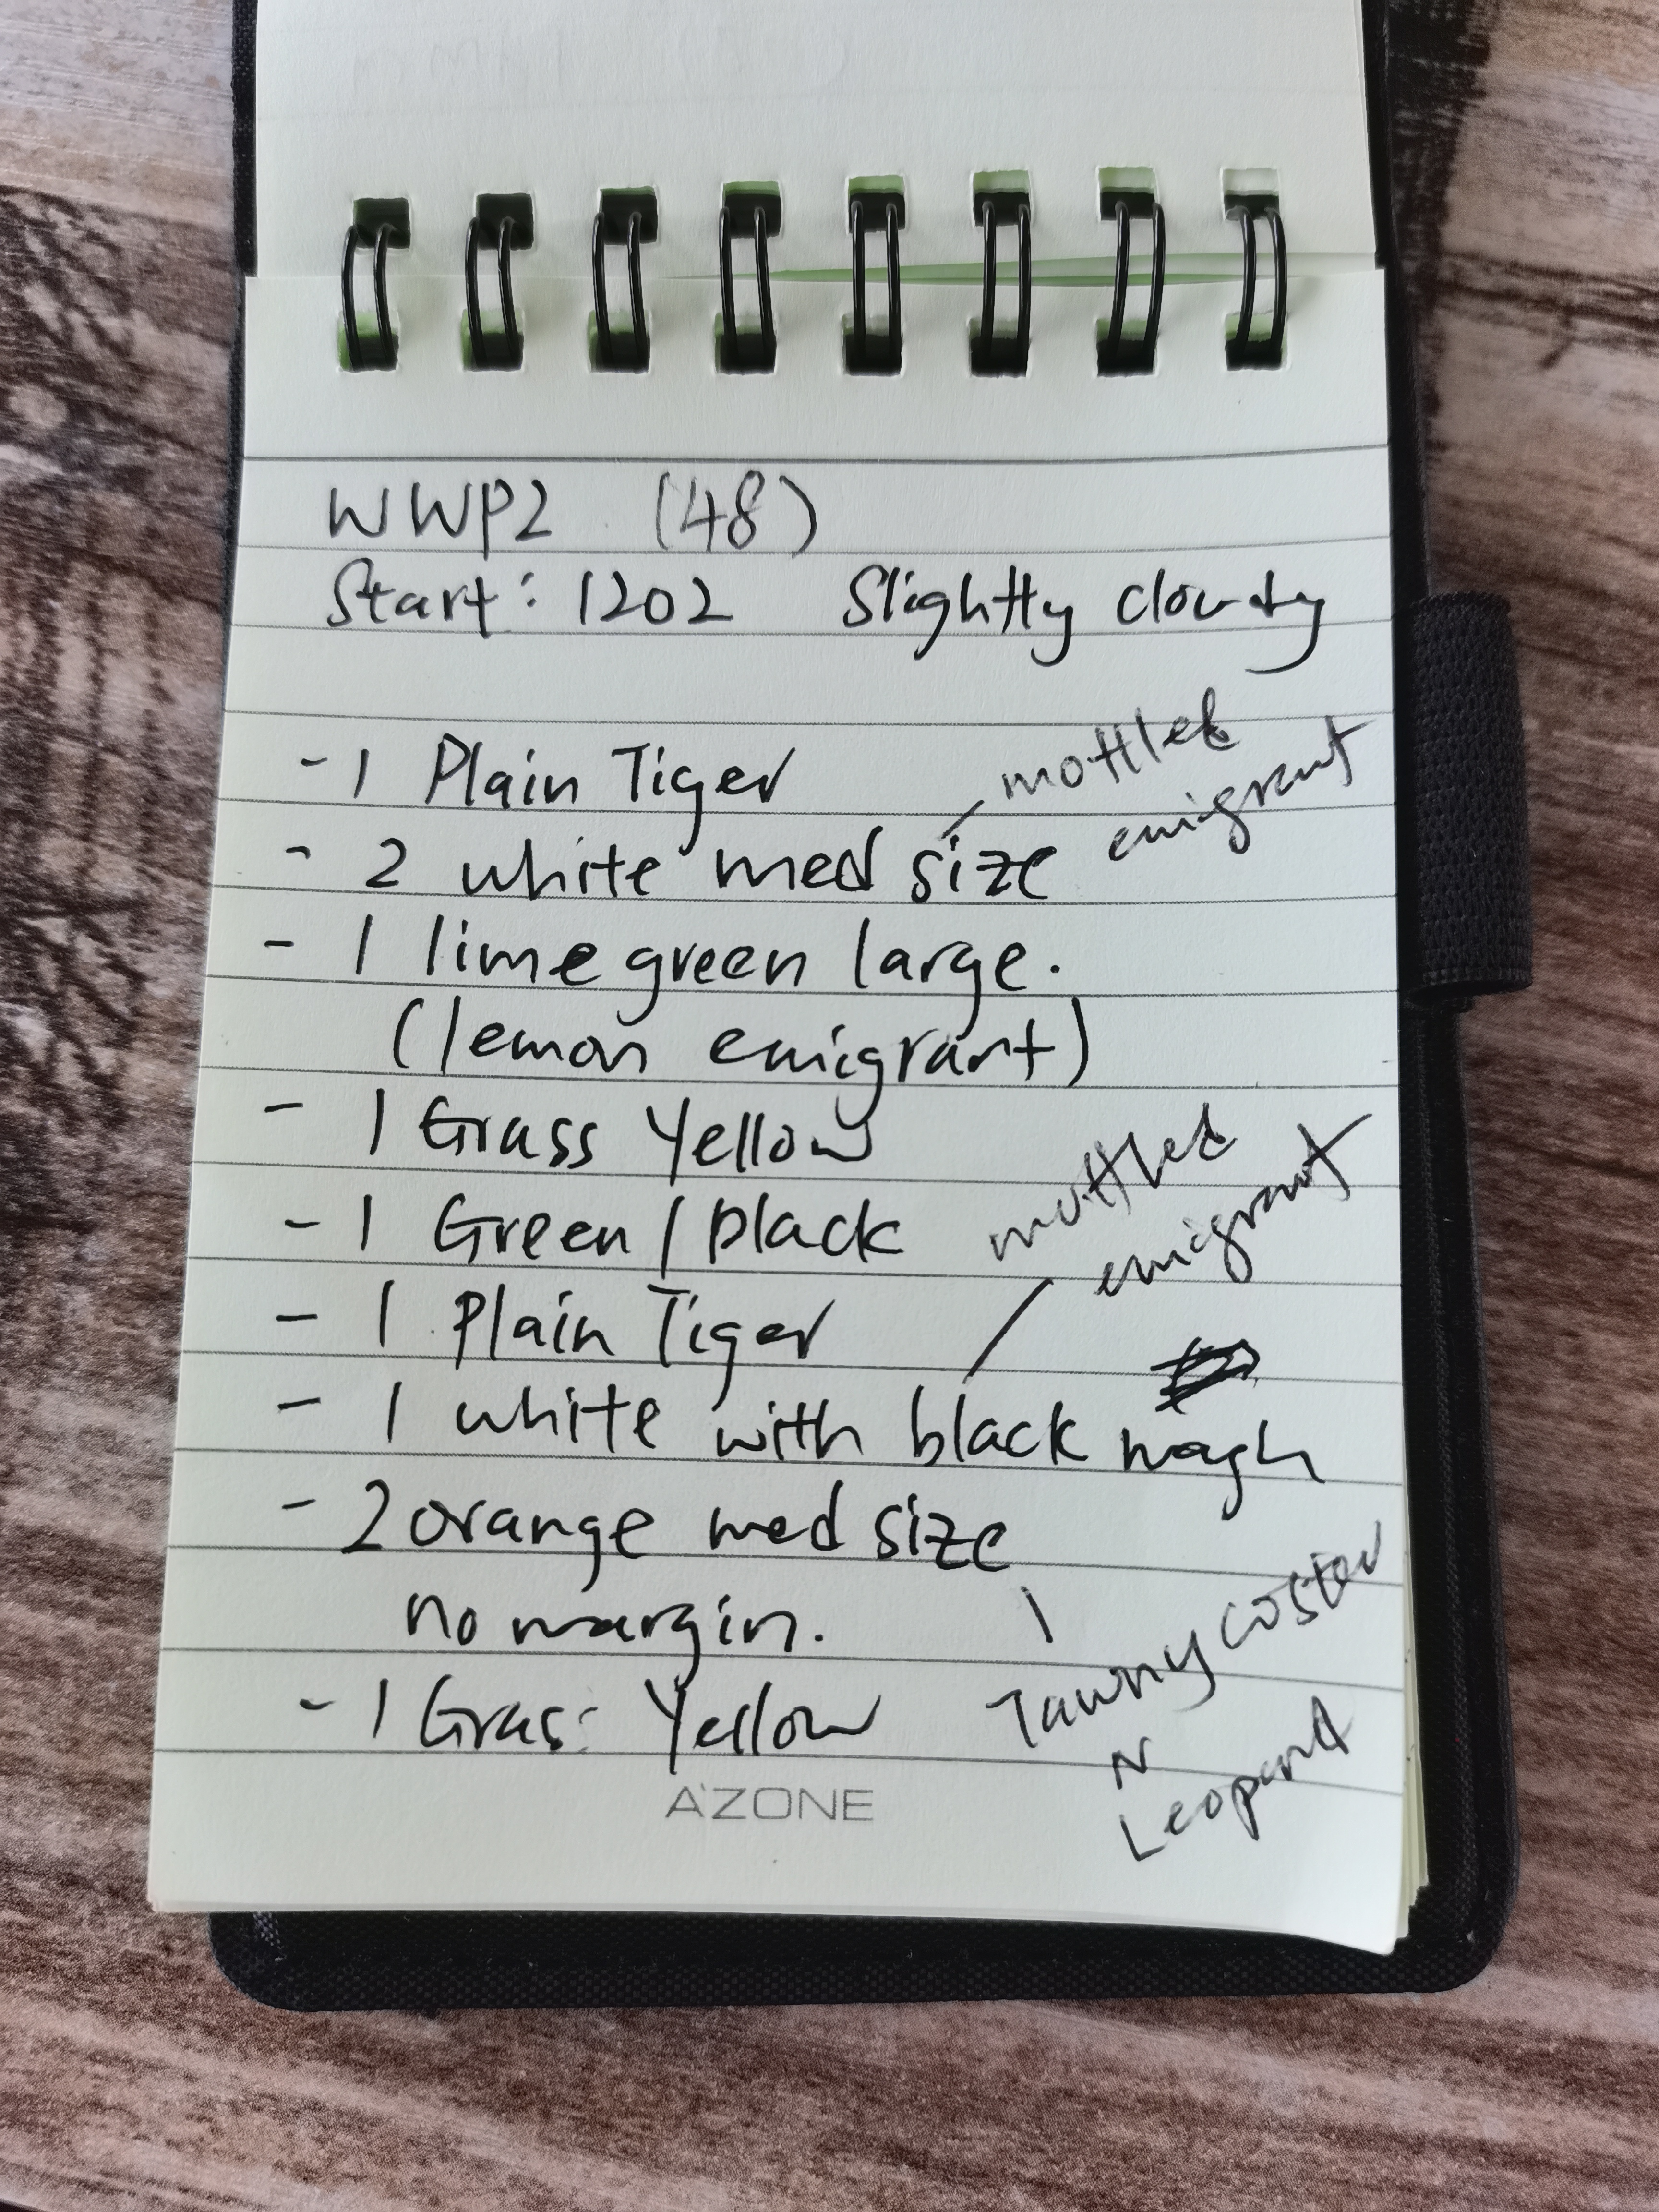 WWP2 (48)
Start: 1202 Slightly cloudy
- 1 Plain Tiger
mottled
emigrant
- 2 white med size
- 1 lime green large.
(lemon emigrant)
- 1 Grass Yellow
- 1 Green / black
mottled
emigrant
- 1 Plain Tiger
- 1 white with black
- 2 orange med size
no margin.
- 1 Grass Yellow
Tawny Coster
N
Leopard
A'ZONE